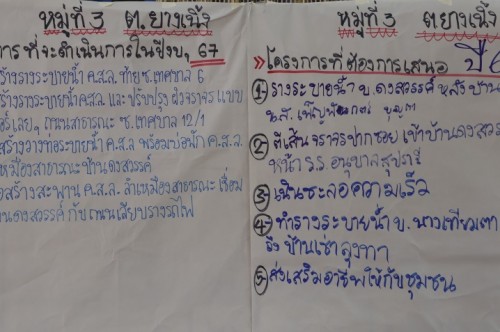 หมู่ที่ 3 ต.ยางเนิ้ง
การที่จะดำเนินการในปีงบ, 67
สร้างรางระบายน้ำ ค.ส.ล. ท้ายซ.เทศบาล 6
สร้างรางระบายน้ำ ค.ส.ล. และปรับปรุง ผิวจราจร แบบ
ถนนสาธารณะ ซ.เทศบาล 12/1
สร้างวางท่อระบายน้ำ ค.ส.ล พร้อมบ่อพัก ค.ส.ล.
เหมืองสาธารณะบ้านดงสวรรค์
อสร้างสะพาน ค.ส.ล. ลำเหมืองสาธารณะ เชื่อม
านดงสวรรค์ กับ ถนนเลียบรางรถไฟ
หมู่ที่ 3 ต.ยางเนิ้ง
โครงการที่ ต้องการเสนอ ปี 6
1 รางระบายน้ำ บ.ดงสวรรค์ หลังบ้าน
น.ส.
2 ตีเส้นจราจรปากซอย เข้าบ้านดงสวร
หน้า ร.ร. อนุบาล
3 เนินชะลอความเร็ว
4 ทำรางระบายน้ำ บ.
ถึง บ้านเช่าลุงทา
5 ส่งเสริมอาชีพให้กับชุมชน